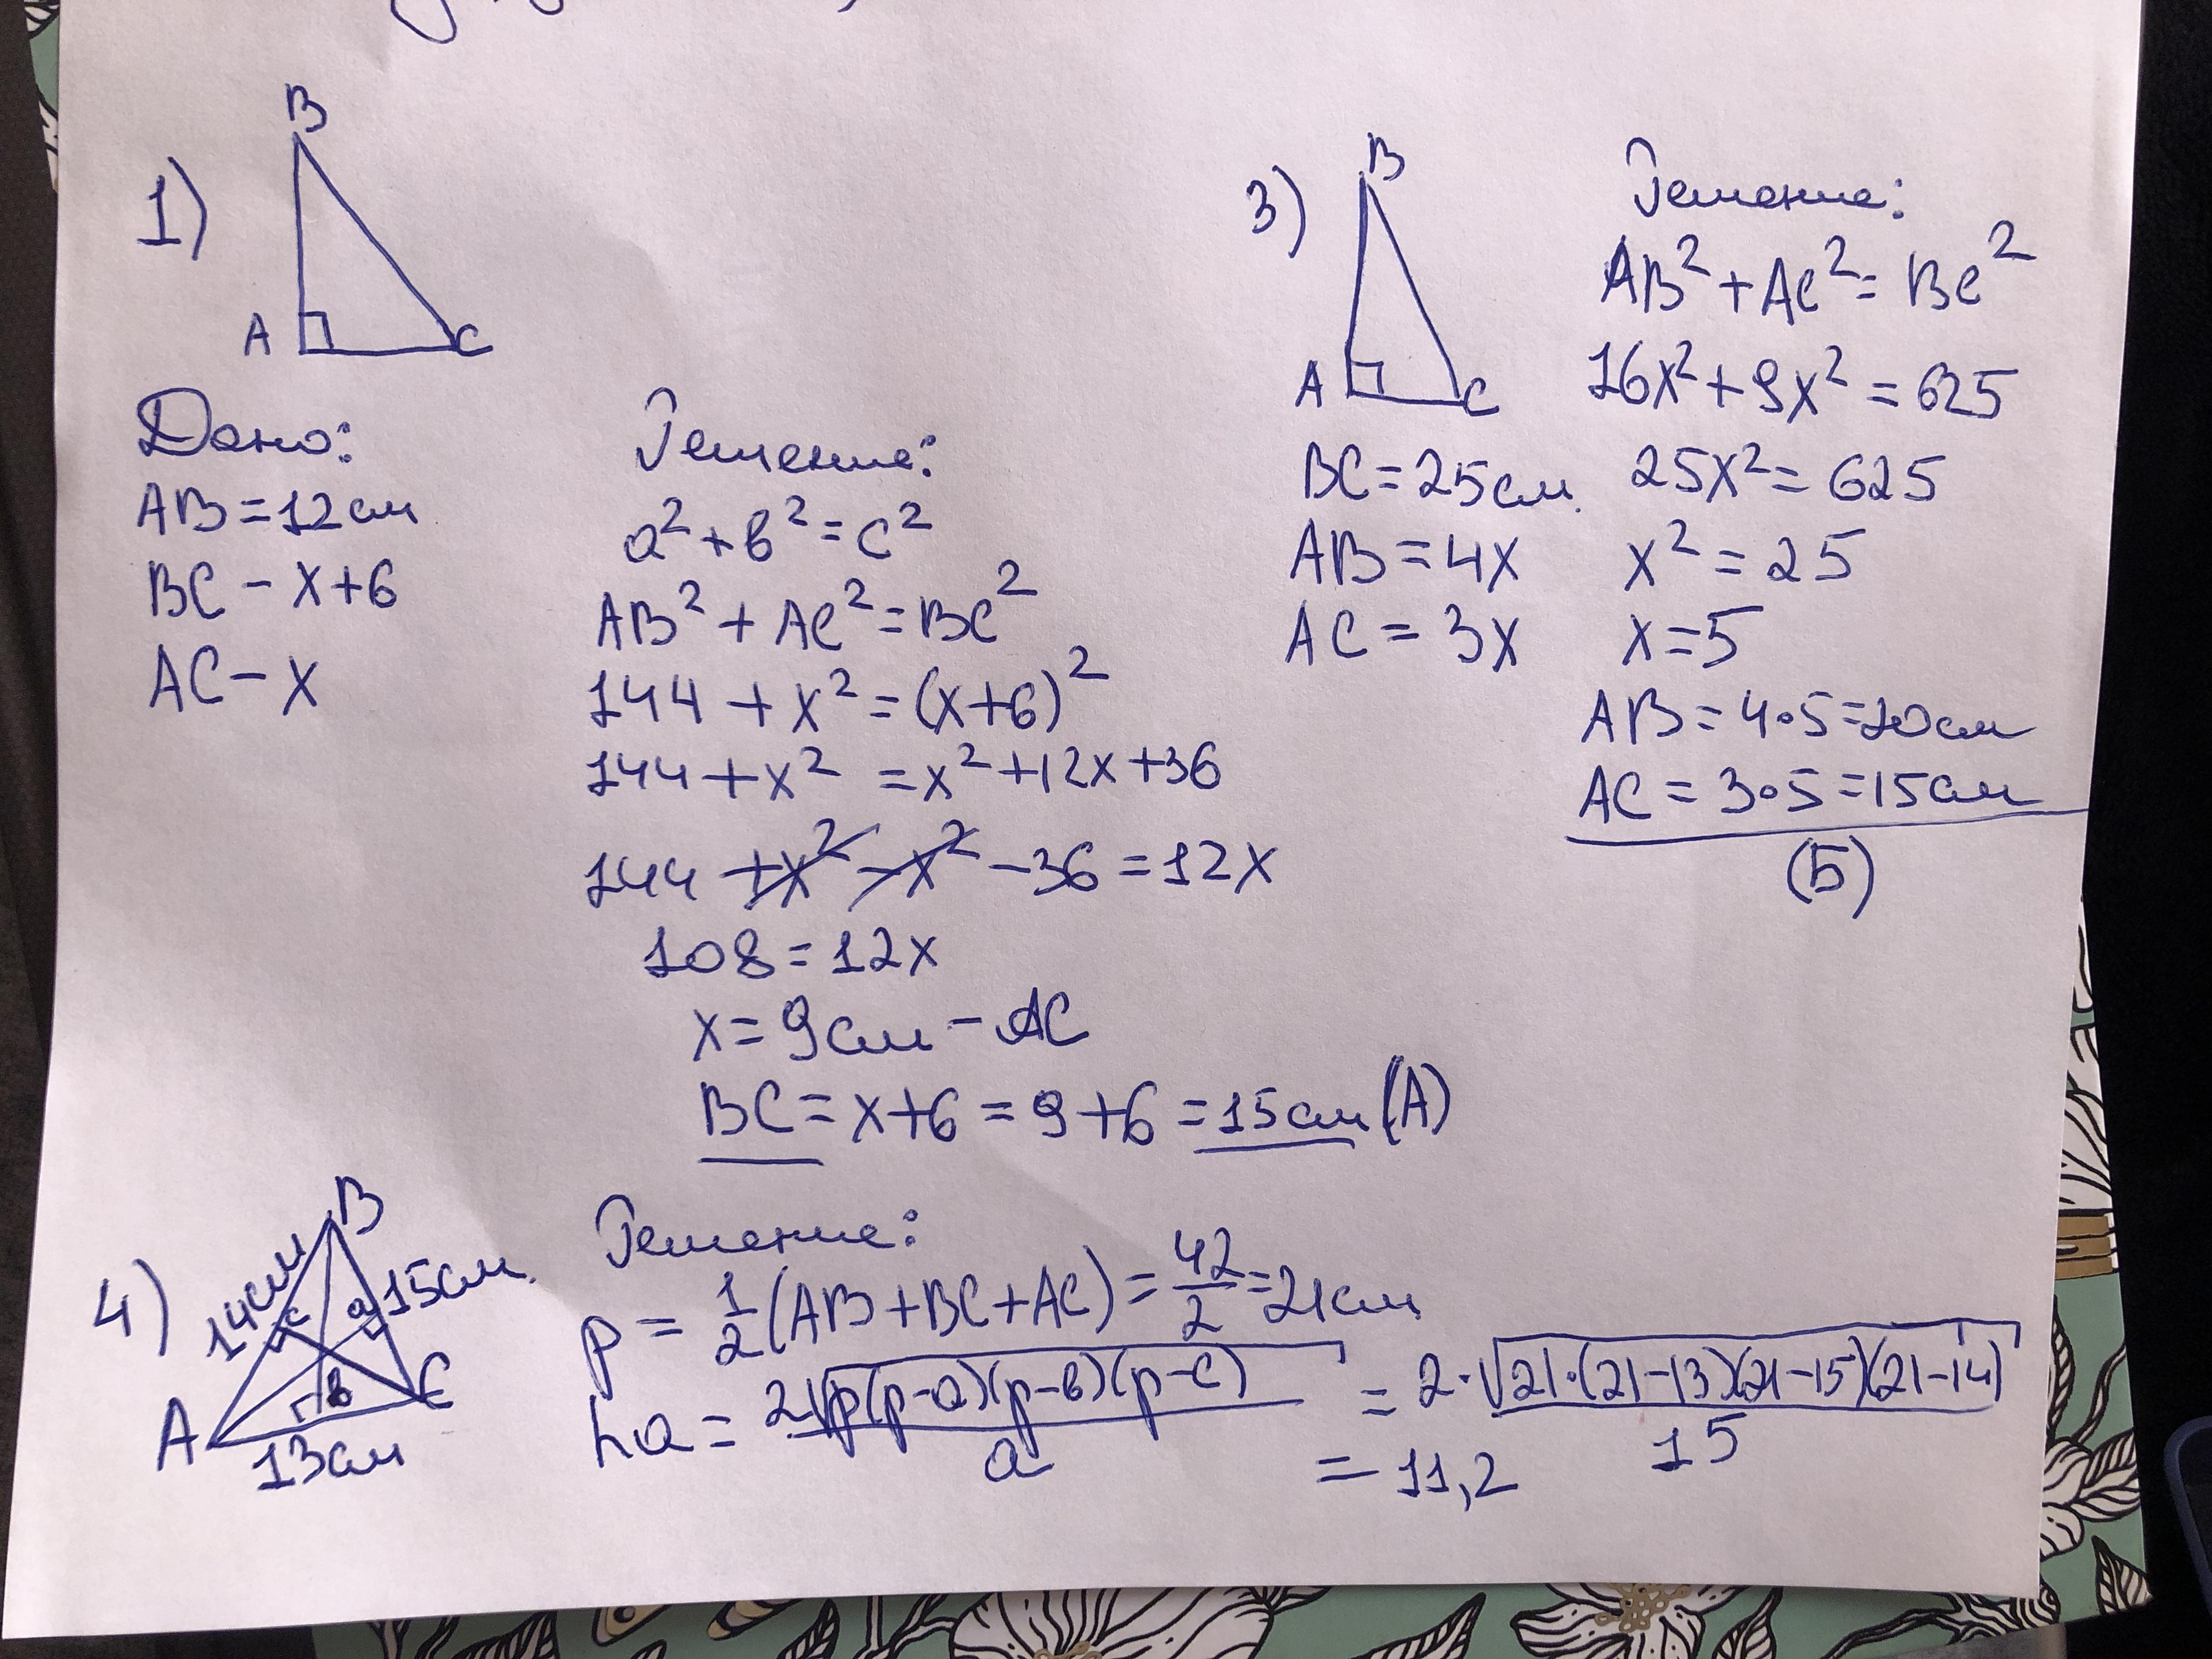 1)
B
A
C
Дано:
AB = 12 см
BC - x+6
AC - x
Решение:
a² + b² = c²
AB² + AC² = BC²
144 + x² = (x+6)²
144 + x² = x² + 12x + 36
144 + x² - x² - 36 = 12x
108 = 12x
x = 9 см - AC
BC = x+6 = 9+6 = 15 см (A)
3)
B
A
C
BC = 25 см.
AB = 4x
AC = 3x
Решение:
AB² + AC² = BC²
16x² + 9x² = 625
25x² = 625
x² = 25
x = 5
AB = 4•5 = 20 см
AC = 3•5 = 15 см
(Б)
4)
B
14 см
c
a
15 см.
в
A
C
13 см
Решение:
p = 1/2 (AB + BC + AC) = 42/2 = 21 см
ha = 2√p(p-a)(p-в)(p-c) / a = 2·√21·(21-13)(21-15)(21-14) / 15
= 11,2